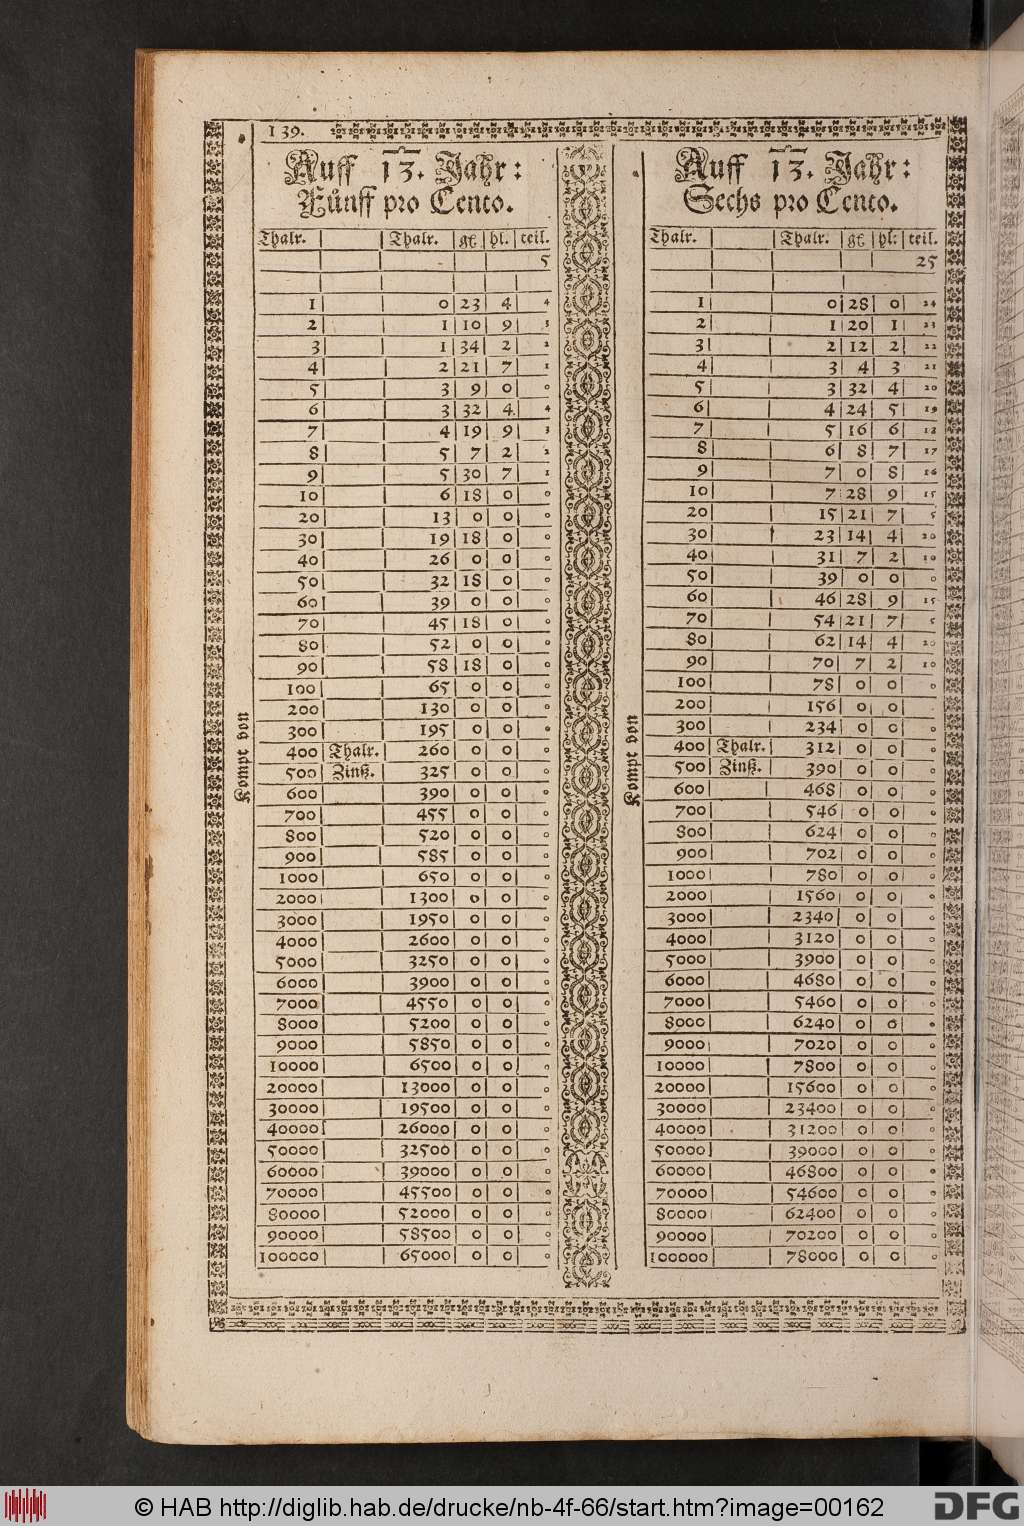 139.
Auff 13. Jahr:
Fůnff pro Cento.
Thalr. Thalr. gℓ hl. teil.
5
1 0 23 4 4
2 1 10 9 3
3 1 34 2 2
4 2 21 7 1
5 3 9 0 0
6 3 32 4 4
7 4 19 9 3
8 5 7 2 2
9 5 30 7 1
10 6 18 0 0
20 13 0 0 0
30 19 18 0 0
40 26 0 0 0
50 32 18 0 0
60 39 0 0 0
70 45 18 0 0
80 52 0 0 0
90 58 18 0 0
100 65 0 0 0
200 130 0 0 0
300 195 0 0 0
400 Thalr. 260 0 0 0
500 Zinß. 325 0 0 0
600 390 0 0 0
700 455 0 0 0
800 520 0 0 0
900 585 0 0 0
1000 650 0 0 0
2000 1300 0 0 0
3000 1950 0 0 0
4000 2600 0 0 0
5000 3250 0 0 0
6000 3900 0 0 0
7000 4550 0 0 0
8000 5200 0 0 0
9000 5850 0 0 0
10000 6500 0 0 0
20000 13000 0 0 0
30000 19500 0 0 0
40000 26000 0 0 0
50000 32500 0 0 0
60000 39000 0 0 0
70000 45500 0 0 0
80000 52000 0 0 0
90000 58500 0 0 0
100000 65000 0 0 0
Kompt von
Auff 13. Jahr:
Sechs pro Cento.
Thalr. Thalr. gℓ hl: teil.
25
1 0 28 0 24
2 1 20 1 23
3 2 12 2 22
4 3 4 3 21
5 3 32 4 20
6 4 24 5 19
7 5 16 6 18
8 6 8 7 17
9 7 0 8 16
10 7 28 9 15
20 15 21 7 5
30 23 14 4 20
40 31 7 2 10
50 39 0 0 0
60 46 28 9 15
70 54 21 7 5
80 62 14 4 20
90 70 7 2 10
100 78 0 0
200 156 0 0
300 234 0 0
400 Thalr. 312 0 0 0
500 Zinß. 390 0 0 0
600 468 0 0 0
700 546 0 0 0
800 624 0 0 0
900 702 0 0 0
1000 780 0 0 0
2000 1560 0 0 0
3000 2340 0 0 0
4000 3120 0 0 0
5000 3900 0 0 0
6000 4680 0 0 0
7000 5460 0 0 0
8000 6240 0 0 0
9000 7020 0 0 0
10000 7800 0 0 0
20000 15600 0 0 0
30000 23400 0 0 0
40000 31200 0 0 0
50000 39000 0 0 0
60000 46800 0 0 0
70000 54600 0 0 0
80000 62400 0 0 0
90000 70200 0 0 0
100000 78000 0 0 0
Kompt von
© HAB http://diglib.hab.de/drucke/nb-4f-66/start.htm?image=00162
DFG